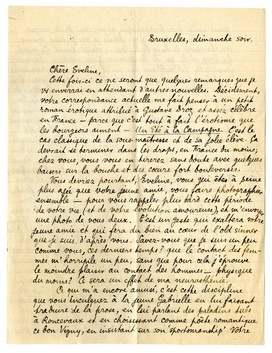 Bruxelles, dimanche soir.
Chère Eveline,
Cette fois-ci ce ne seront que quelques remarques que je
vous enverrai en attendant d'autres nouvelles. Décidément,
votre correspondance actuelle me fait penser à un petit
roman érotique attribué à Gustave Droz et assez célèbre
en France – parce que c'est tout à fait l'érotisme que
les bourgeois aiment – Un Été à la Campagne. C'est le
cas classique de la sous-maîtresse et de sa jolie élève. Ça
devrait se terminer dans les draps, en France du moins;
chez vous, vous vous en tirerez sans doute avec quelques
baisers sur la bouche et des cœurs fort bouleversés.
Vous devriez pourtant, Eveline, vous qui êtes à peine
plus âgée que votre jeune amie, vous faire photographier
ensemble – pour vous rappeler plus tard cette période
de votre vie (et de votre évolution amoureuse), et m'envoyer
une photo de vous deux. C'est un geste qui
et qui fera du bien au cœur de l'old sinner
que je suis d'après vous. Savez-vous que je suis un peu
comme vous, ces derniers temps? que le contact des femmes
m'horripile un peu, sans que pour cela j'éprouve
le moindre plaisir au contact des hommes – physique
du moins! Ce sera un effet de ma neurasthénie.
Ce qui m'a encore amusé, c'est cette discipline
que vous inculquez à la jeune Gabrielle en lui faisant
traduire de la prose, en lui parlant des paladins tués
à Roncevaux et en choisissant comme poète romantique
ce bon Vigny, en insistant sur son "sportmanship". Votre